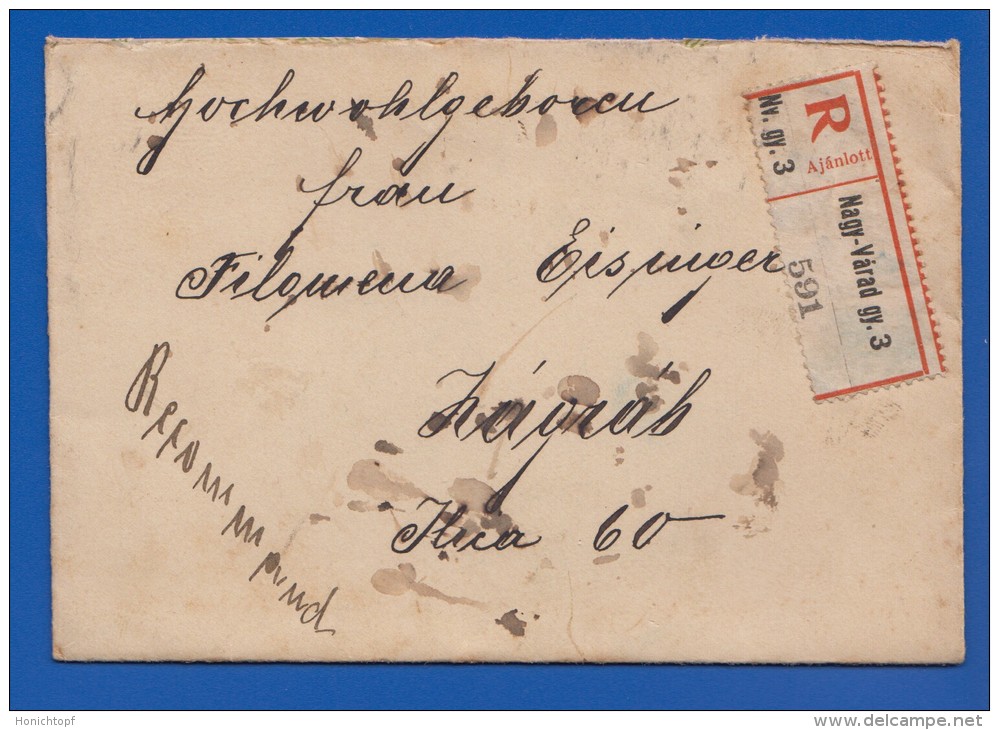 Hochwohlgeboren
frau
Filomena Eisinger
Zágráb
Ilica 60
Recommand
R
Ajánlott
Nv. gy. 3
Nagy-Várad gy. 3
591
Honichtopf
www.delcampe.net